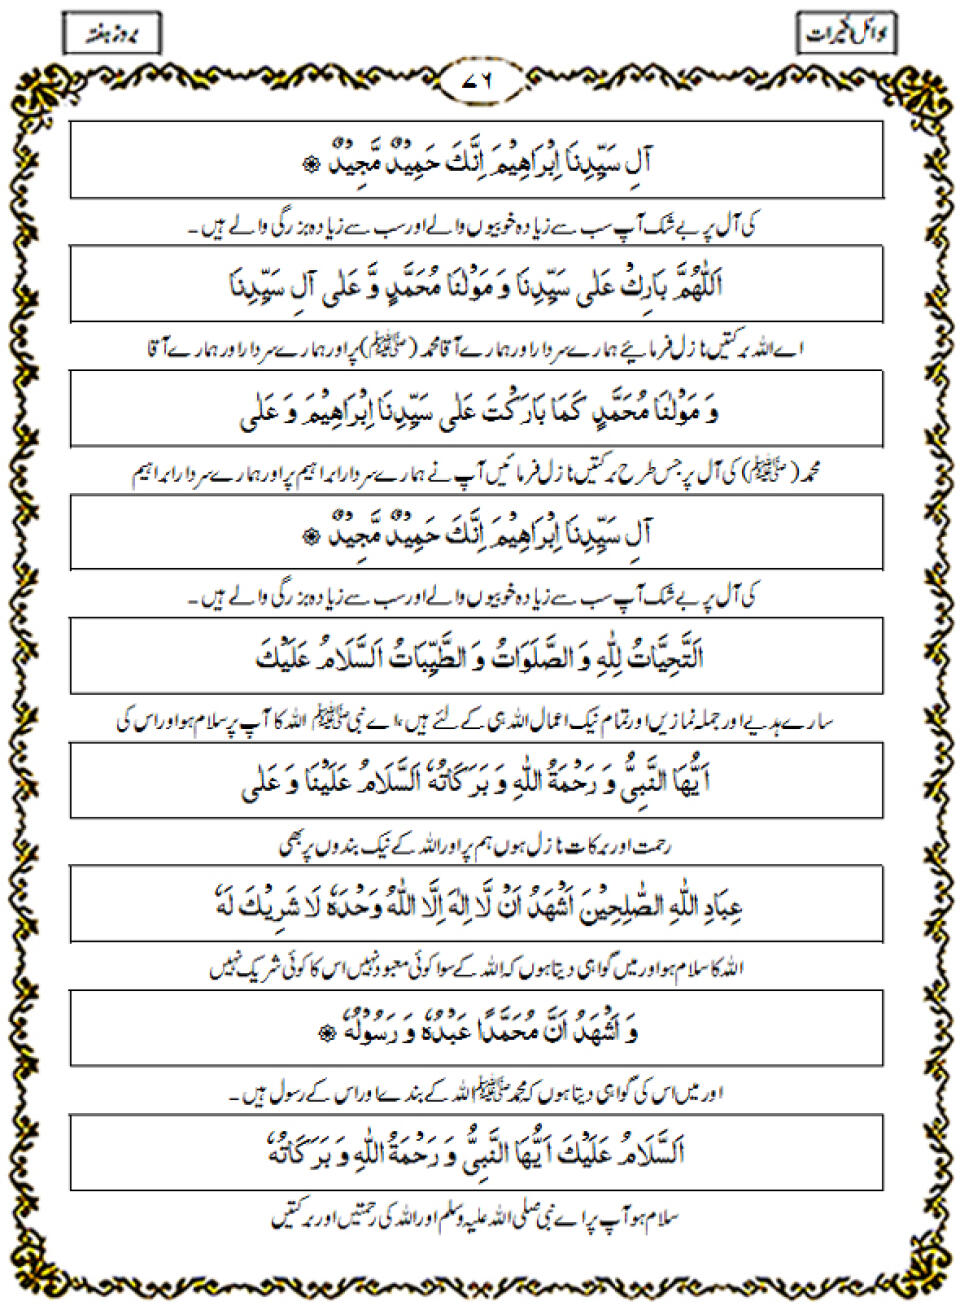 بروز ہفتہ
٧٦
آلِ سَيِّدِنَا اِبْرَاهِيْمَ اِنَّكَ حَمِيْدٌ مَّجِيْدٌ ۞
کی آل پر بے شک آپ سب سے زیادہ خوبیوں والے اور سب سے زیادہ بزرگی والے ہیں۔
اَللّٰهُمَّ بَارِكْ عَلٰى سَيِّدِنَا وَ مَوْلٰنَا مُحَمَّدٍ وَّ عَلٰى آلِ سَيِّدِنَا
اے اللہ برکتیں نازل فرمائیے ہمارے سردار اور ہمارے آقا محمد (ﷺ) پر اور ہمارے سردار اور ہمارے آقا
وَ مَوْلٰنَا مُحَمَّدٍ كَمَا بَارَكْتَ عَلٰى سَيِّدِنَا اِبْرَاهِيْمَ وَ عَلٰى
محمد (ﷺ) کی آل پر جس طرح برکتیں نازل فرمائیں آپ نے ہمارے سردار ابراہیم پر اور ہمارے سردار ابراہیم
آلِ سَيِّدِنَا اِبْرَاهِيْمَ اِنَّكَ حَمِيْدٌ مَّجِيْدٌ ۞
کی آل پر بے شک آپ سب سے زیادہ خوبیوں والے اور سب سے زیادہ بزرگی والے ہیں۔
اَلتَّحِيَّاتُ لِلّٰهِ وَ الصَّلَوَاتُ وَ الطَّيِّبَاتُ اَلسَّلَامُ عَلَيْكَ
سارے ہدیے اور جملہ نمازیں اور تمام نیک اعمال اللہ ہی کے لئے ہیں، اے نبی ﷺ اللہ کا آپ پر سلام ہو اور اس کی
اَيُّهَا النَّبِيُّ وَ رَحْمَةُ اللّٰهِ وَ بَرَكَاتُهٗ اَلسَّلَامُ عَلَيْنَا وَ عَلٰى
رحمت اور برکات نازل ہوں ہم پر اور اللہ کے نیک بندوں پر بھی
عِبَادِ اللّٰهِ الصّٰلِحِيْنَ اَشْهَدُ اَنْ لَّا اِلٰهَ اِلَّا اللّٰهُ وَحْدَهٗ لَا شَرِيْكَ لَهٗ
اللہ کا سلام ہو اور میں گواہی دیتا ہوں کہ اللہ کے سوا کوئی معبود نہیں اس کا کوئی شریک نہیں
وَ اَشْهَدُ اَنَّ مُحَمَّدًا عَبْدُهٗ وَ رَسُوْلُهٗ ۞
اور میں اس کی گواہی دیتا ہوں کہ محمد ﷺ اللہ کے بندے اور اس کے رسول ہیں۔
اَلسَّلَامُ عَلَيْكَ اَيُّهَا النَّبِيُّ وَ رَحْمَةُ اللّٰهِ وَ بَرَكَاتُهٗ
سلام ہو آپ پر اے نبی صلی اللہ علیہ وسلم اور اللہ کی رحمتیں اور برکتیں